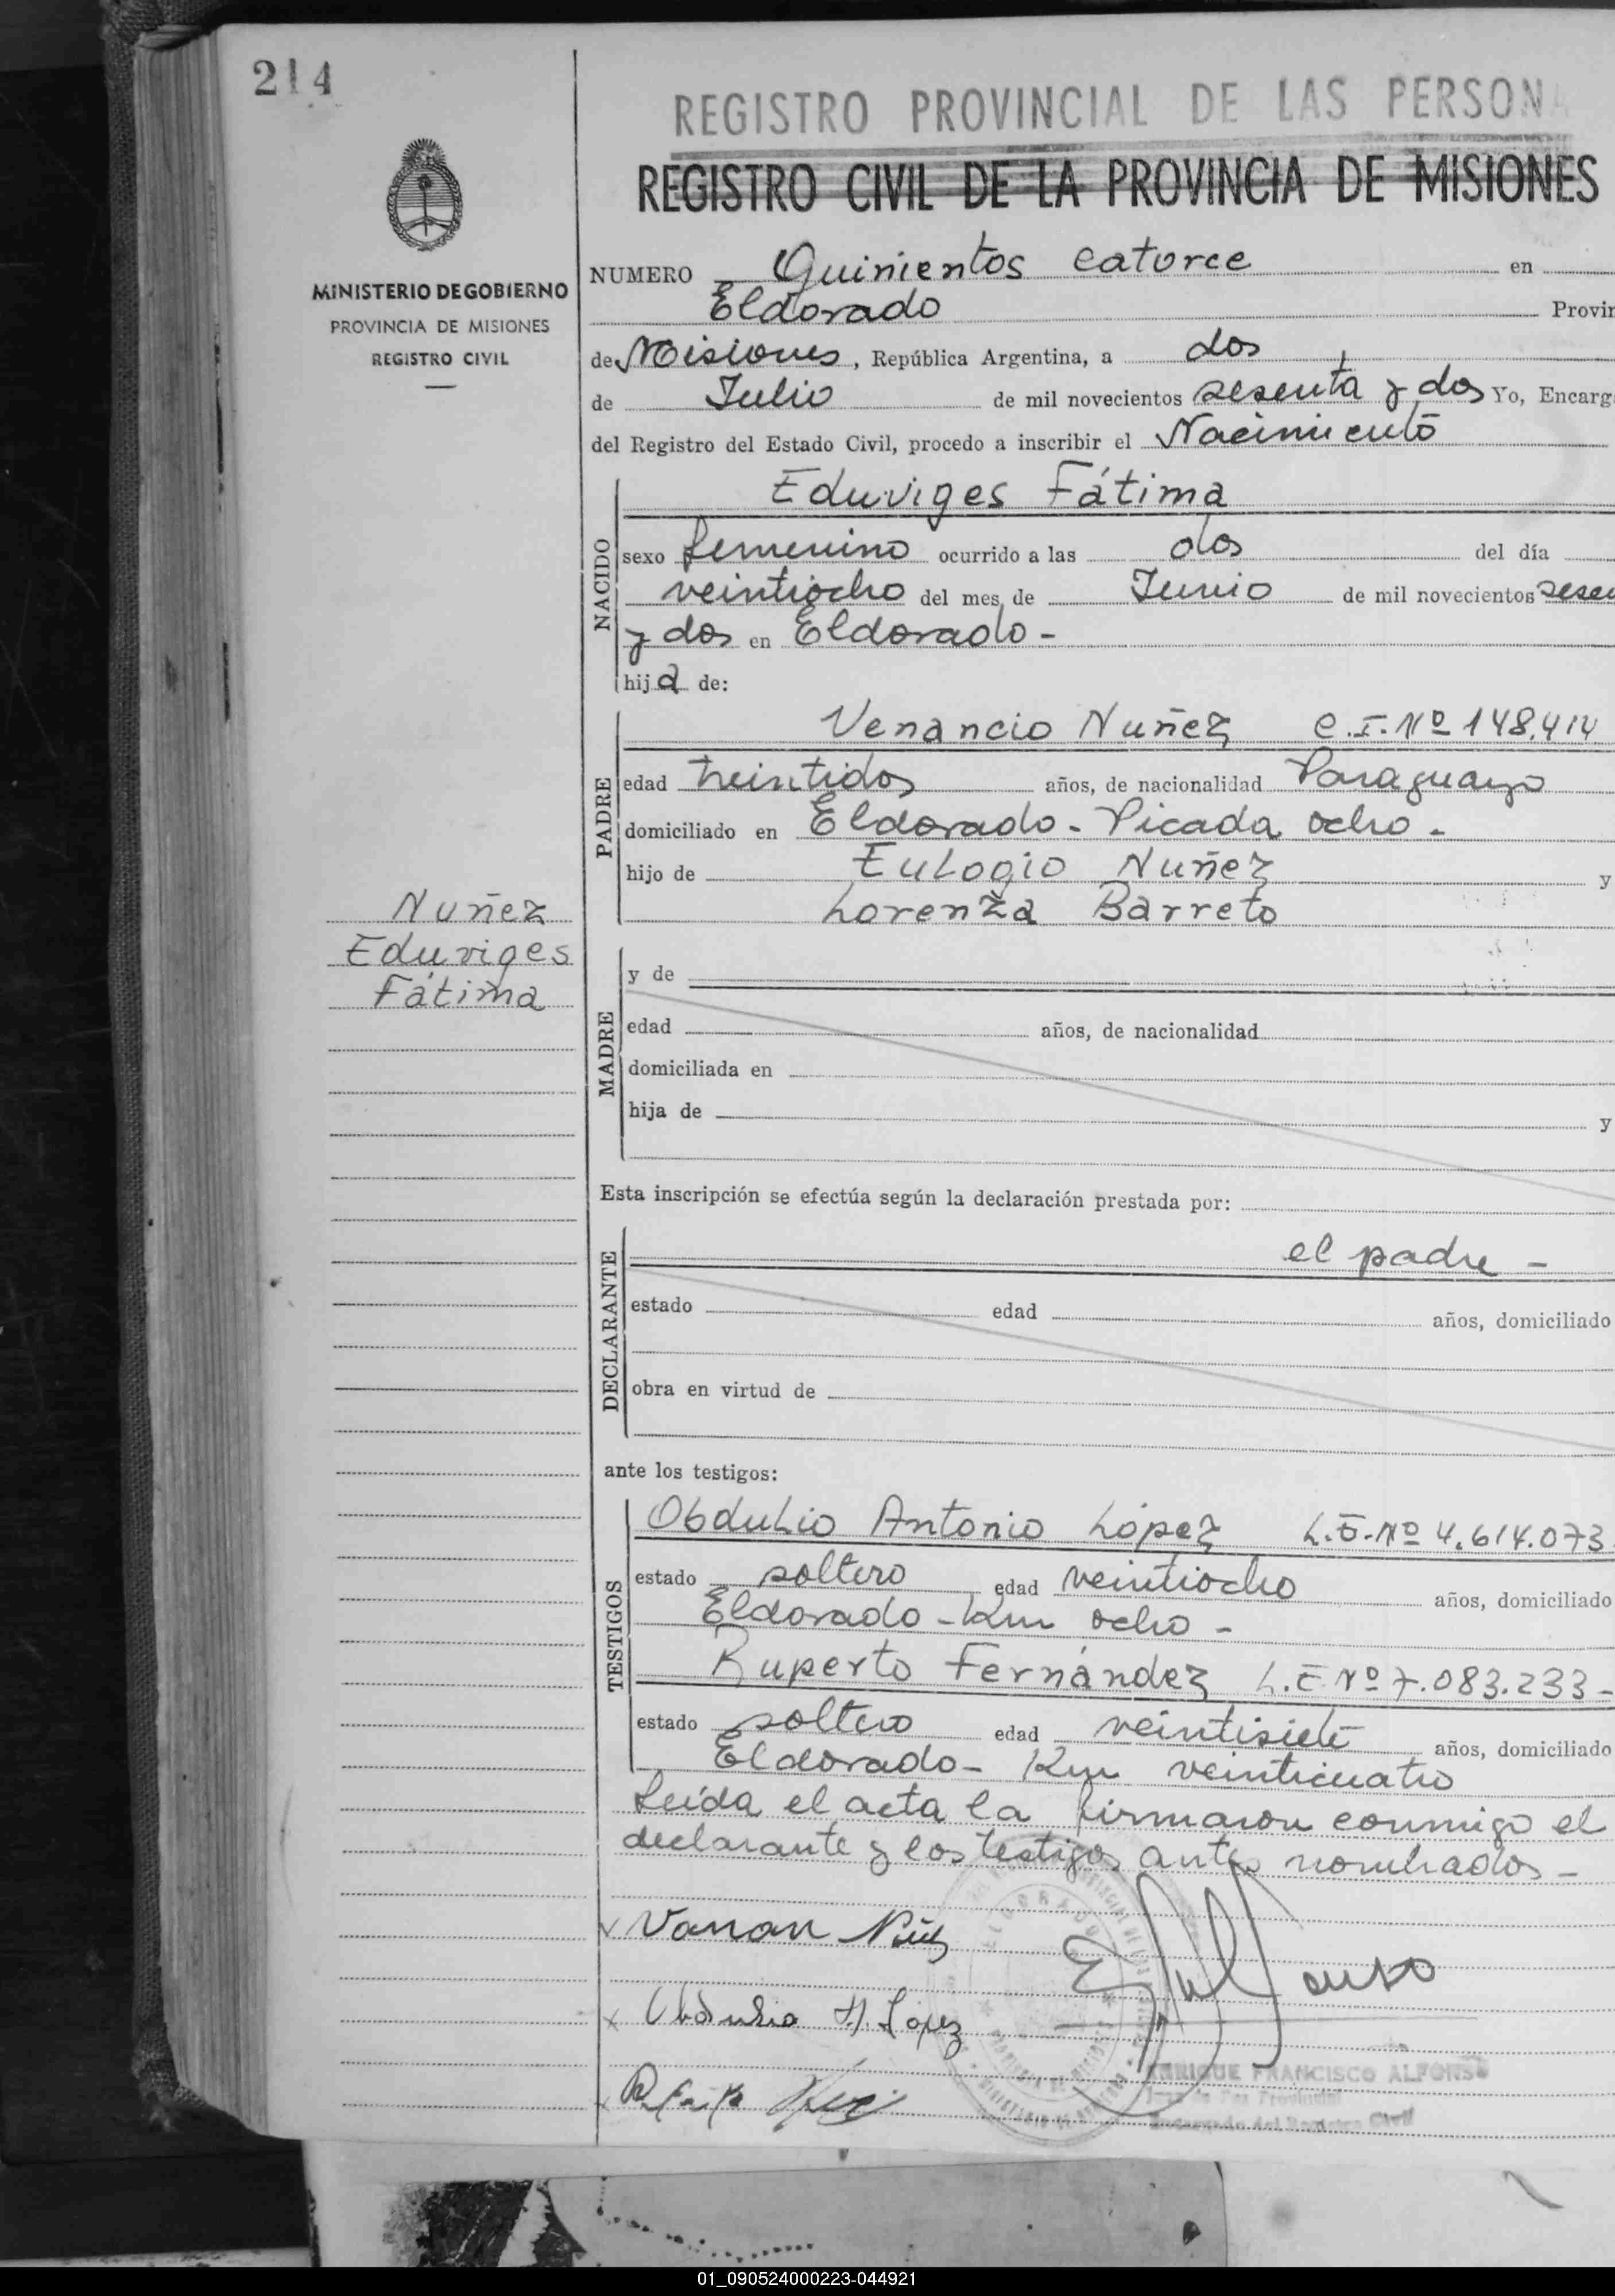 214
REGISTRO PROVINCIAL DE LAS PERSONA
REGISTRO CIVIL DE LA PROVINCIA DE MISIONES
MINISTERIO DE GOBIERNO
PROVINCIA DE MISIONES
REGISTRO CIVIL
NUMERO Quinientos catorce en
Eldorado Provin
de Misiones, República Argentina, a dos
de Julio de mil novecientos sesenta y dos Yo, Encarg
del Registro del Estado Civil, procedo a inscribir el Nacimiento
NACIDO
Eduviges Fátima
sexo femenino ocurrido a las dos del día
veintiocho del mes de Junio de mil novecientos sesen
y dos en Eldorado -
hija de:
PADRE
Venancio Nuñez C.I. Nº 148.414
edad treintidos años, de nacionalidad Paraguayo
domiciliado en Eldorado - Picada ocho -
hijo de Eulogio Nuñez y
Lorenza Barreto
Nuñez
Eduviges
Fátima
MADRE
y de
edad años, de nacionalidad
domiciliada en
hija de y
Esta inscripción se efectúa según la declaración prestada por:
DECLARANTE
el padre -
estado edad años, domiciliado
obra en virtud de
ante los testigos:
TESTIGOS
Obdulio Antonio López L.E. Nº 4.614.073
estado soltero edad veintiocho años, domiciliado
Eldorado - Km ocho -
Ruperto Fernández L.E. Nº 7.083.233 -
estado soltero edad veintisiete años, domiciliado
Eldorado - Km veinticuatro
Leída el acta la firmaron conmigo el
declarante y los testigos antes nombrados -
Obdulio A. López
ENRIQUE FRANCISCO ALFONSO
Juez de Paz Provincial
Encargado del Registro Civil
01_090524000223-044921